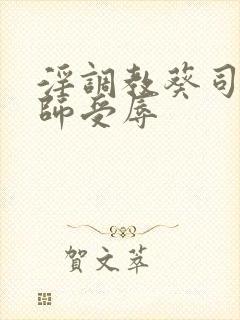 淫調教葵司
師受辱
賀文萃